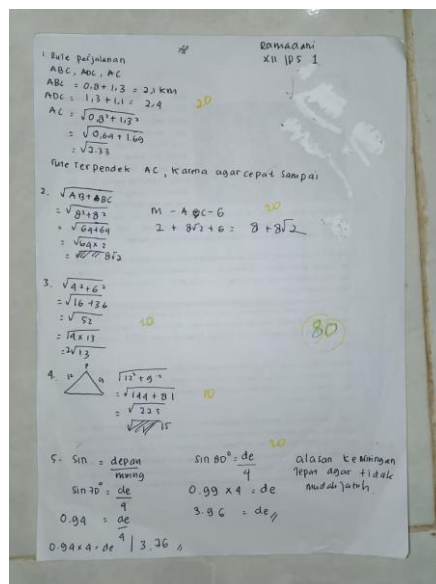 Ramadani
XII IPS 1
1. Rute perjalanan
ABC, ADC, AC
ABC = 0,8 + 1,3 = 2,1 km
ADC = 1,3 + 1,1 = 2,4
20
AC = √0,8² + 1,3²
= √0,64 + 1.69
= √2.33
rute Terpendek AC, Karna agar cepat sampai
2. √AB + BC
= √8² + 8²
= √64 + 64
= √64 x 2
= 8√2
20
M - A C - G
2 + 8√2 + 6 = 8 + 8√2
3. √4² + 6²
= √16 + 36
= √52
= √4 x 13
= 2√13
10
80
4. 12 9
√12² + 9²
= √144 + 81
= √225
15
10
20
5. Sin = depan
miring
Sin 70° = de
4
0.94 = de
4
0.94 x 4 = de | 3.76
Sin 80° = de
4
0.99 x 4 = de
3.96 = de
alasan kemiringan
tepat agar tidak
mudah jatuh